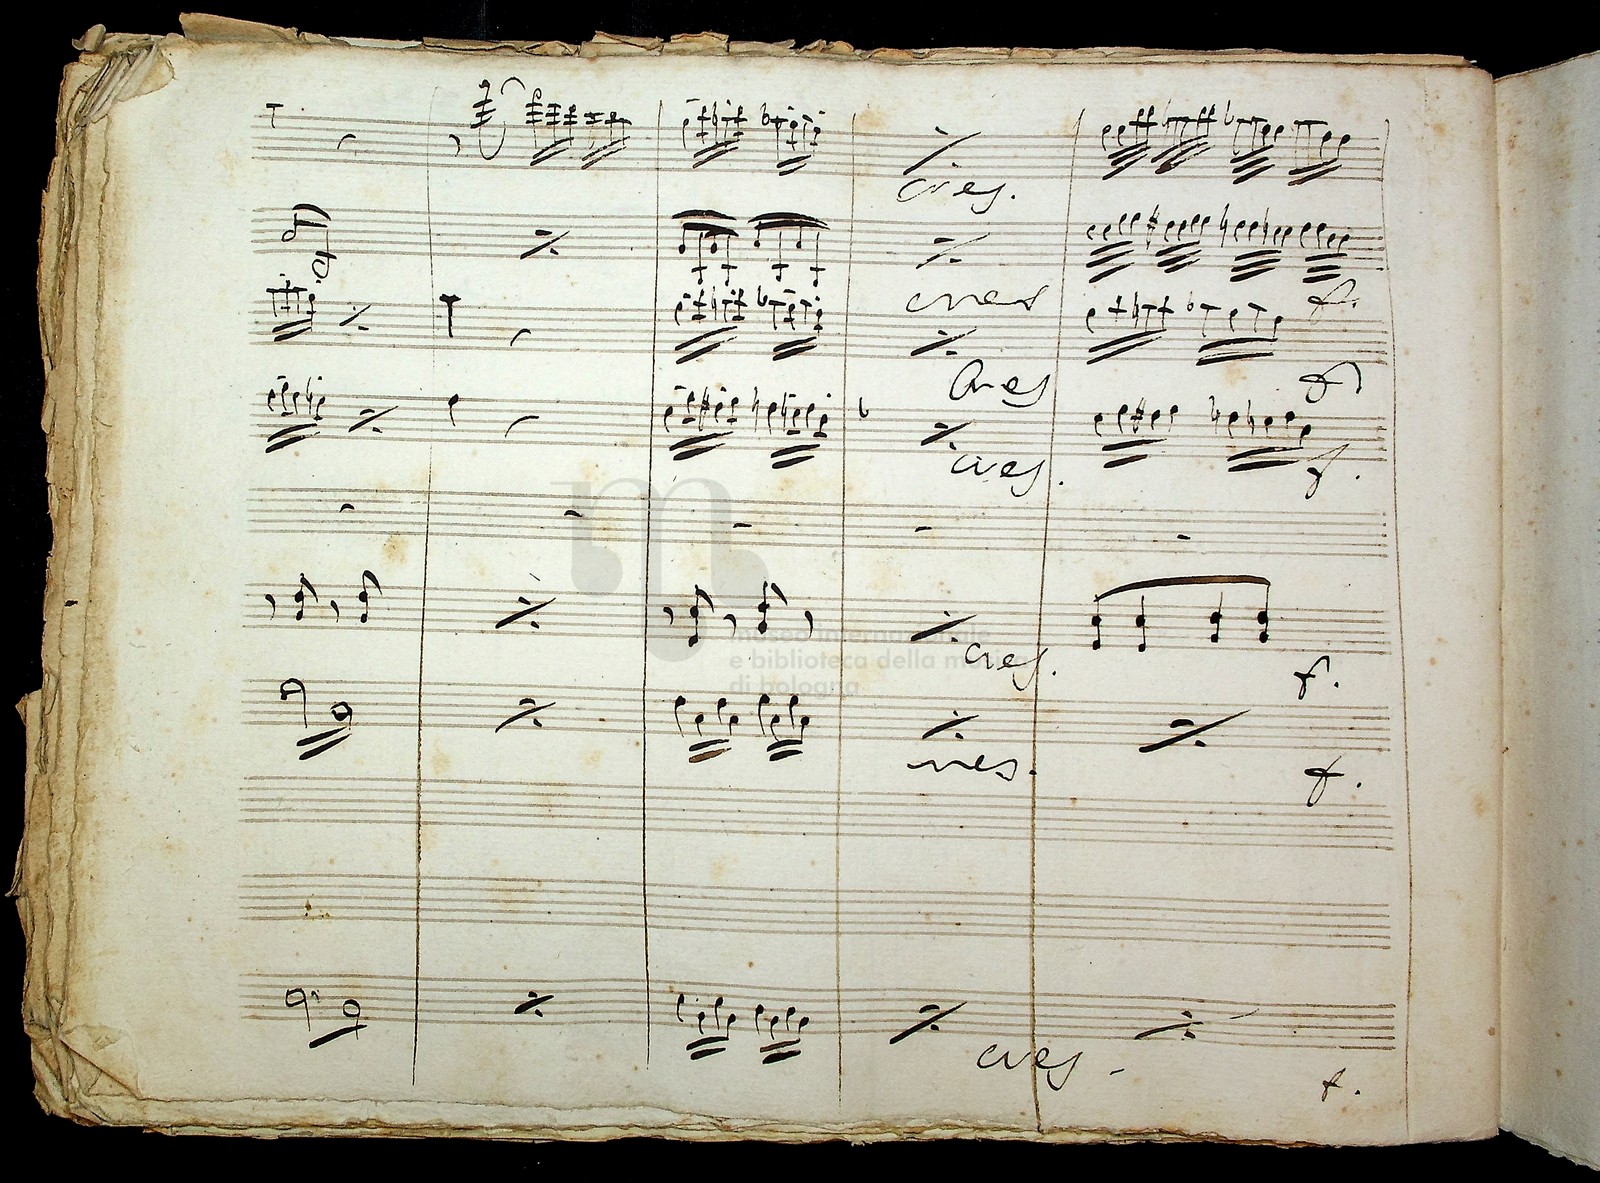 cres.
cres
f.
cres
f
cres.
f.
museo internazionale
cres.
e biblioteca della musica
f.
di bologna
cres.
f.
cres
f.